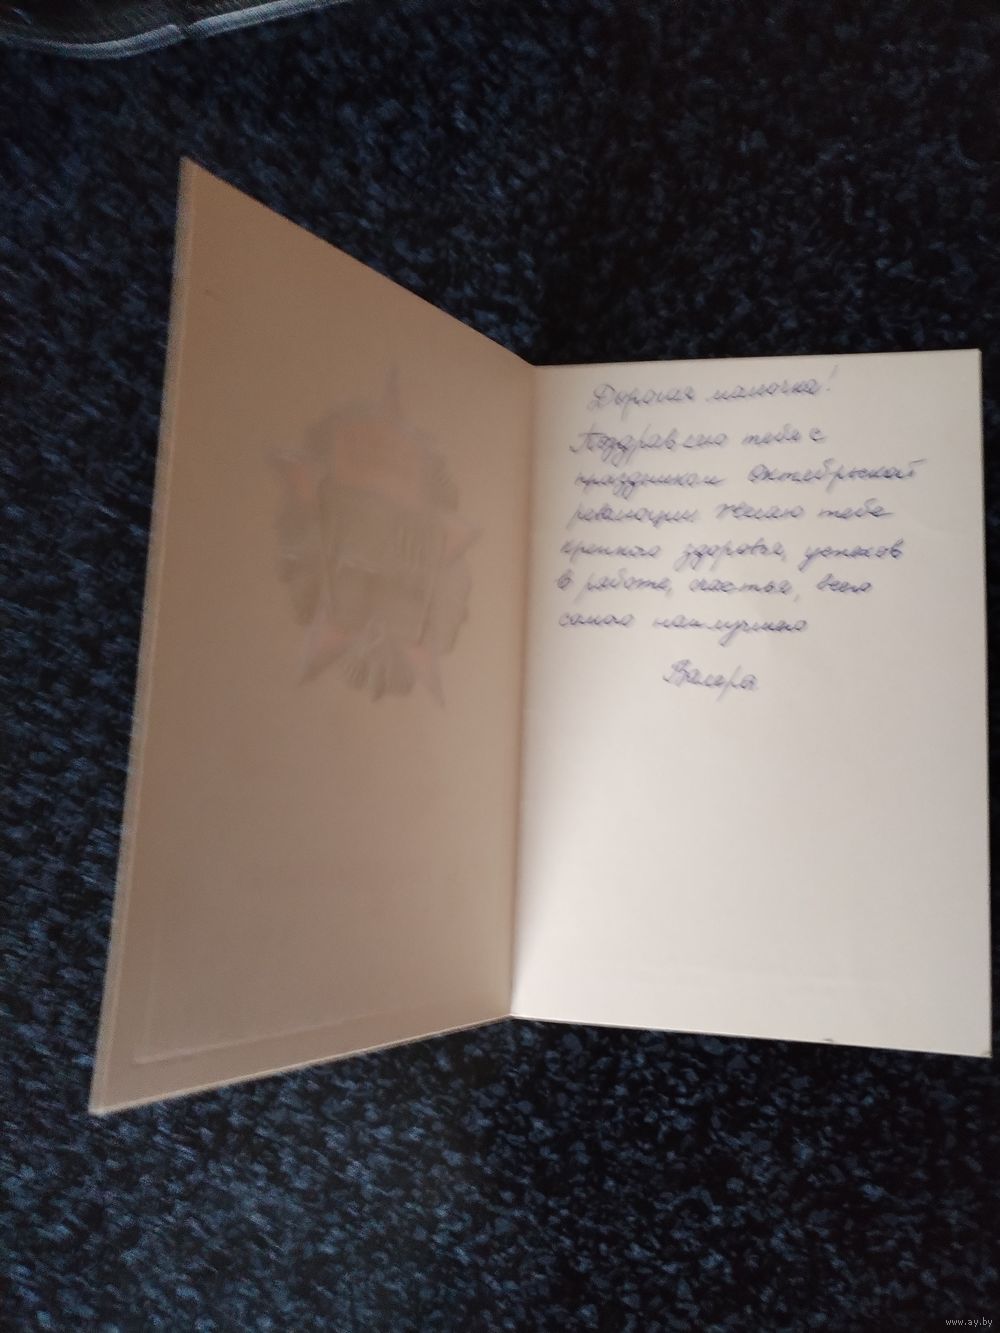 Дорогая мамочка!
Поздравляю тебя с
праздником октябрьской
революции Желаю тебе
крепкого здоровья, успехов
в работе, счастья, всего
самого наилучшего
Валера
www.ay.by